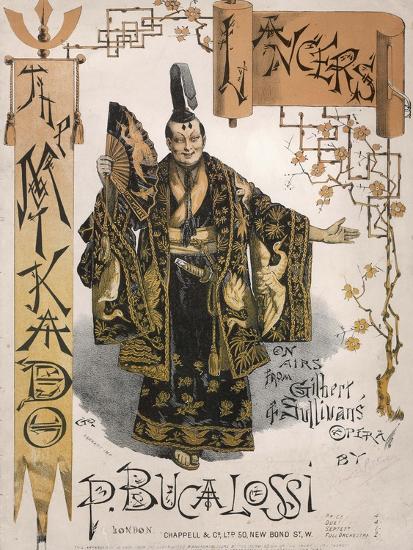 THE MIKADO
LANCERS
ON AIRS
FROM Gilbert
& Sullivan's
OPERA
BY
P. BUCALOSSI
LONDON
CHAPPELL & Co, LTD 50, NEW BOND ST, W.
DUET 4
SEPTETT
FULL ORCHESTRA